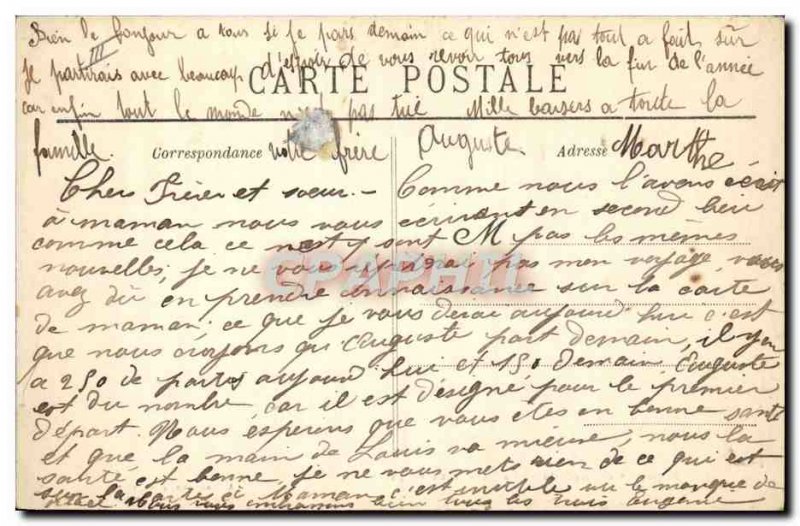 Bien le bonjour a tous si je pars demain ce qui n'est pas tout a fait sûr
je partirais avec beaucoup d'espoir de vous revoir tous vers la fin de l'année
CARTE POSTALE
car enfin tout le monde n'est pas tué Mille baisers a toute la
famille. votre frère Auguste. Marthe
Correspondance
Adresse
Chers Frères et sœur. - Comme nous l'avons écrit
à maman nous vous écrivons en second lieu
comme cela ce n'est pas les mêmes
nouvelles, je ne vous mon voyage, vous
avez dû en prendre connaissance sur la carte
de maman, ce que je vous dirai aujourd'hui c'est
que nous croyons qu'Auguste part demain, il y en
a 250 de partis aujourd'hui et 150 demain, Auguste
est du nombre, car il est désigné pour le premier
départ. Nous esperons que vous êtes en bonne santé
et que la main de Louis va mieux, nous la
santé est bonne, je ne vous mets rien de ce qui est
sur la carte à Maman c'est inutile vu le manque de
place. Nous vous embrassons bien tous les trois Eugénie
CPARAMA